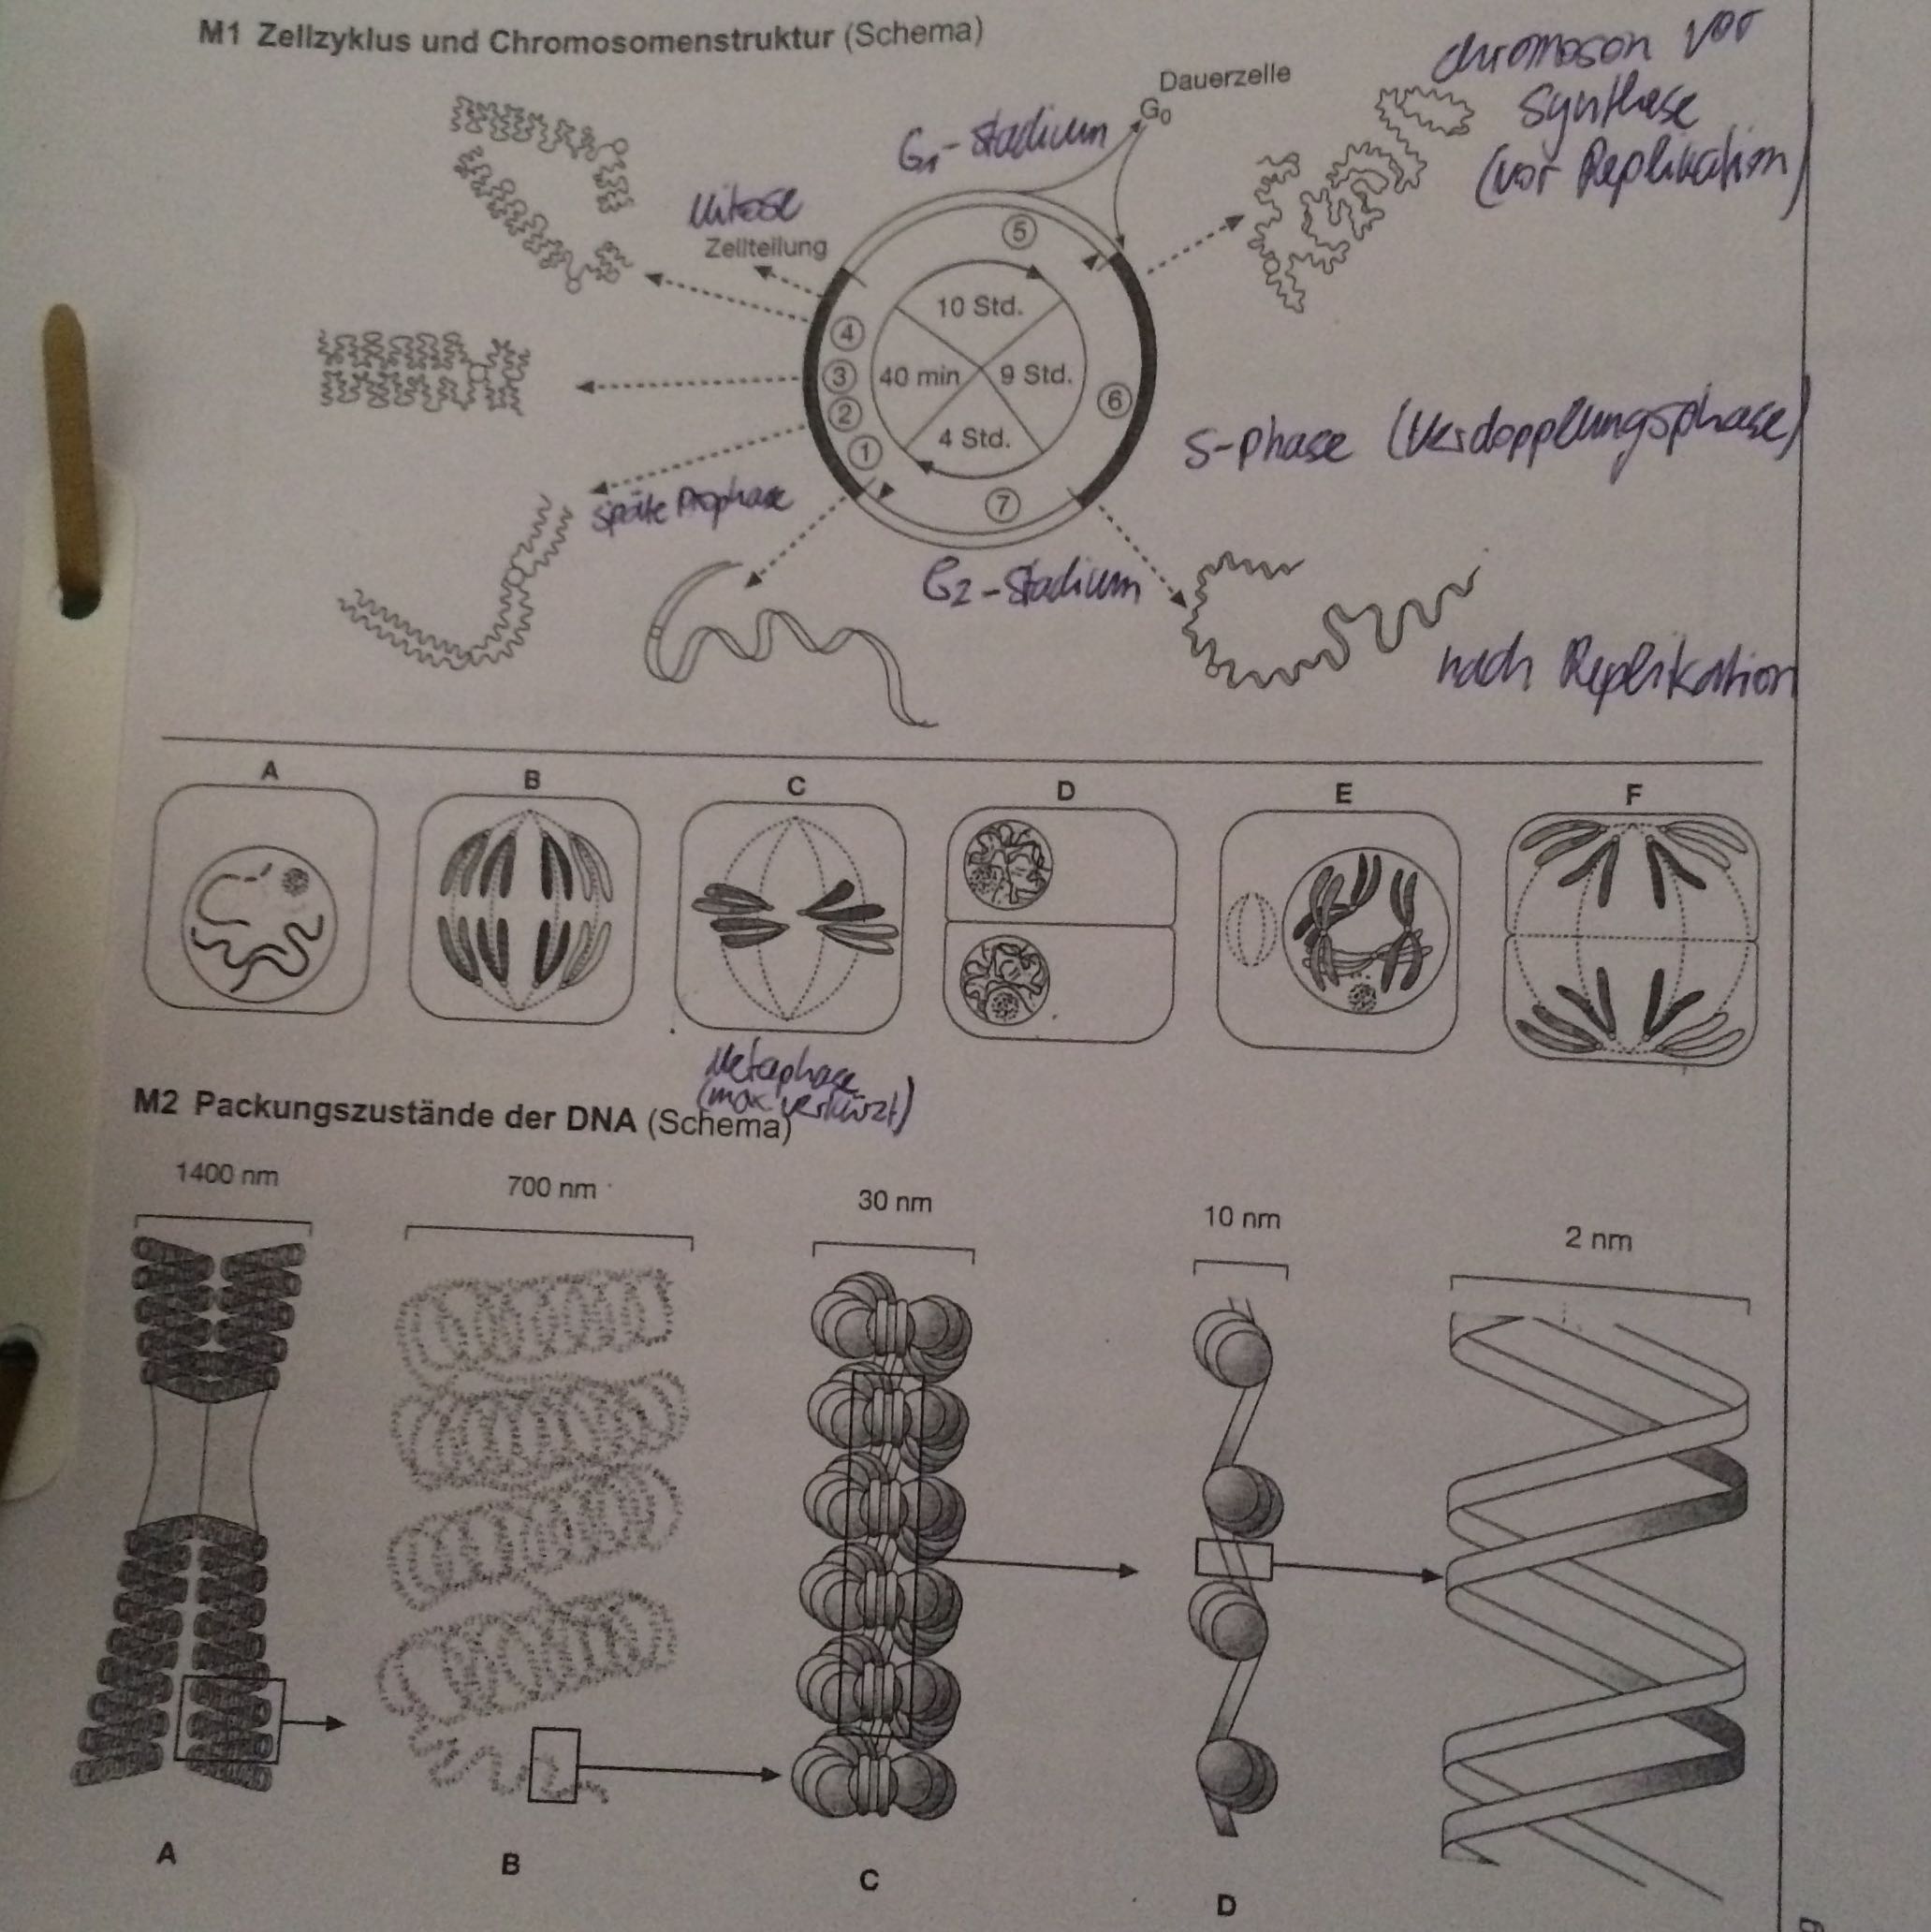 M1 Zellzyklus und Chromosomenstruktur (Schema)
Chromoson vor
Synthese
(vor Replikation)
Dauerzelle
G0
G1-Stadium
Mitose
Zellteilung
5
10 Std.
4
3
40 min
9 Std.
2
6
1
4 Std.
7
S-Phase (Verdopplungsphase)
späte Prophase
G2-Stadium
nach Replikation
A
B
C
D
E
F
Metaphase
(max. verkürzt)
M2 Packungszustände der DNA (Schema)
1400 nm
700 nm
30 nm
10 nm
2 nm
A
B
C
D